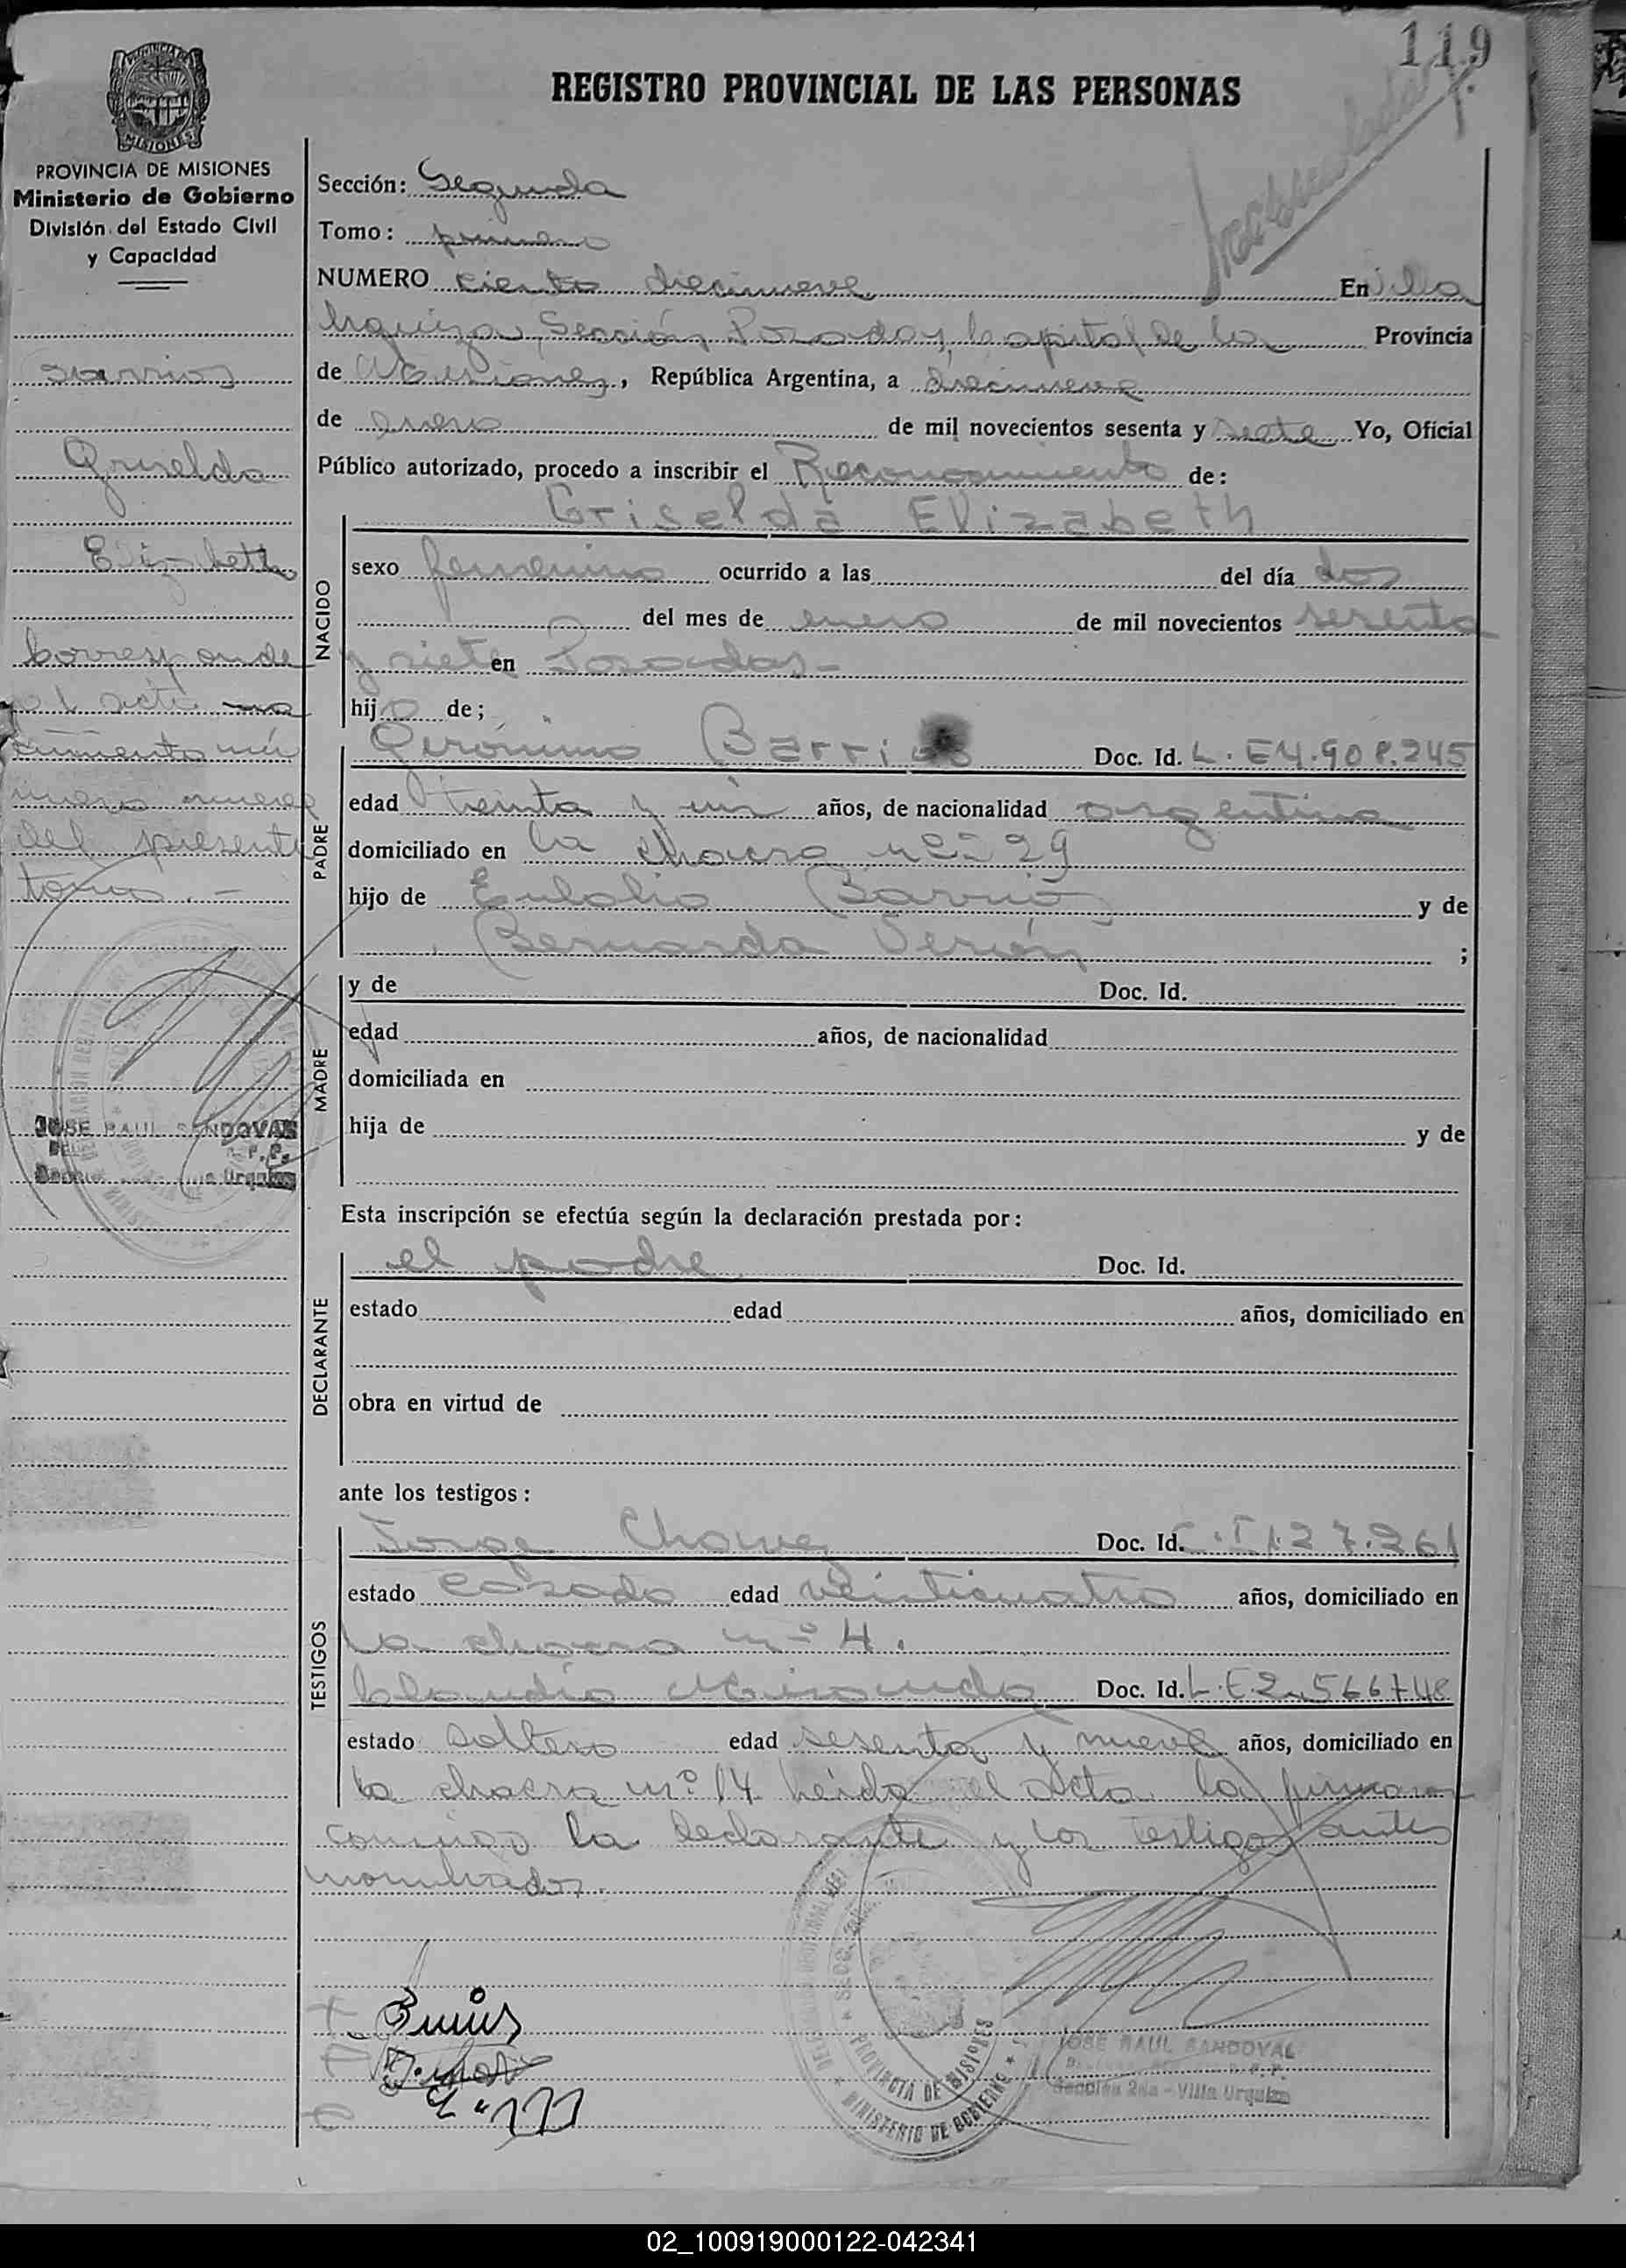 119
REGISTRO PROVINCIAL DE LAS PERSONAS
MISIONES
PROVINCIA DE MISIONES
Ministerio de Gobierno
División del Estado Civil
y Capacidad
Barrios
Griselda
Elizabeth
Corresponde
al acta na
cimiento nú
mero nueve
del presente
tomo.-
JOSE RAUL SANDOVAL
Sección: Segunda
Tomo: primero
NUMERO ciento diecinueve En Villa
Urquiza, Sección Posadas, Capital de la Provincia
de Misiones, República Argentina, a diecinueve
de enero de mil novecientos sesenta y siete Yo, Oficial
Público autorizado, procedo a inscribir el Reconocimiento de:
NACIDO
Griselda Elizabeth
sexo femenino ocurrido a las del día dos
del mes de enero de mil novecientos sesenta
y siete en Posadas-
hija de;
PADRE
Gerónimo Barrios Doc. Id. L.E 4.908.245
edad treinta y un años, de nacionalidad argentina
domiciliado en la chacra nº 29
hijo de Eulalio Barrios y de
Bernarda Verón ;
MADRE
y de Doc. Id.
edad años, de nacionalidad
domiciliada en
hija de y de
Esta inscripción se efectúa según la declaración prestada por:
DECLARANTE
el padre Doc. Id.
estado edad años, domiciliado en
obra en virtud de
ante los testigos:
TESTIGOS
Jorge Doc. Id. C.I 127.261
estado casado edad veinticuatro años, domiciliado en
la chacra nº 4.
Claudio Miranda Doc. Id. L.E 2.566748
estado soltero edad sesenta y nueve años, domiciliado en
la chacra nº 14 leída el acta la firman
conmigo la declarante y los testigos antes
nombrados.
PROVINCIA DE MISIONES
MINISTERIO DE GOBIERNO
JOSE RAUL SANDOVAL
Sección 2da - Villa Urquiza
02_100919000122-042341